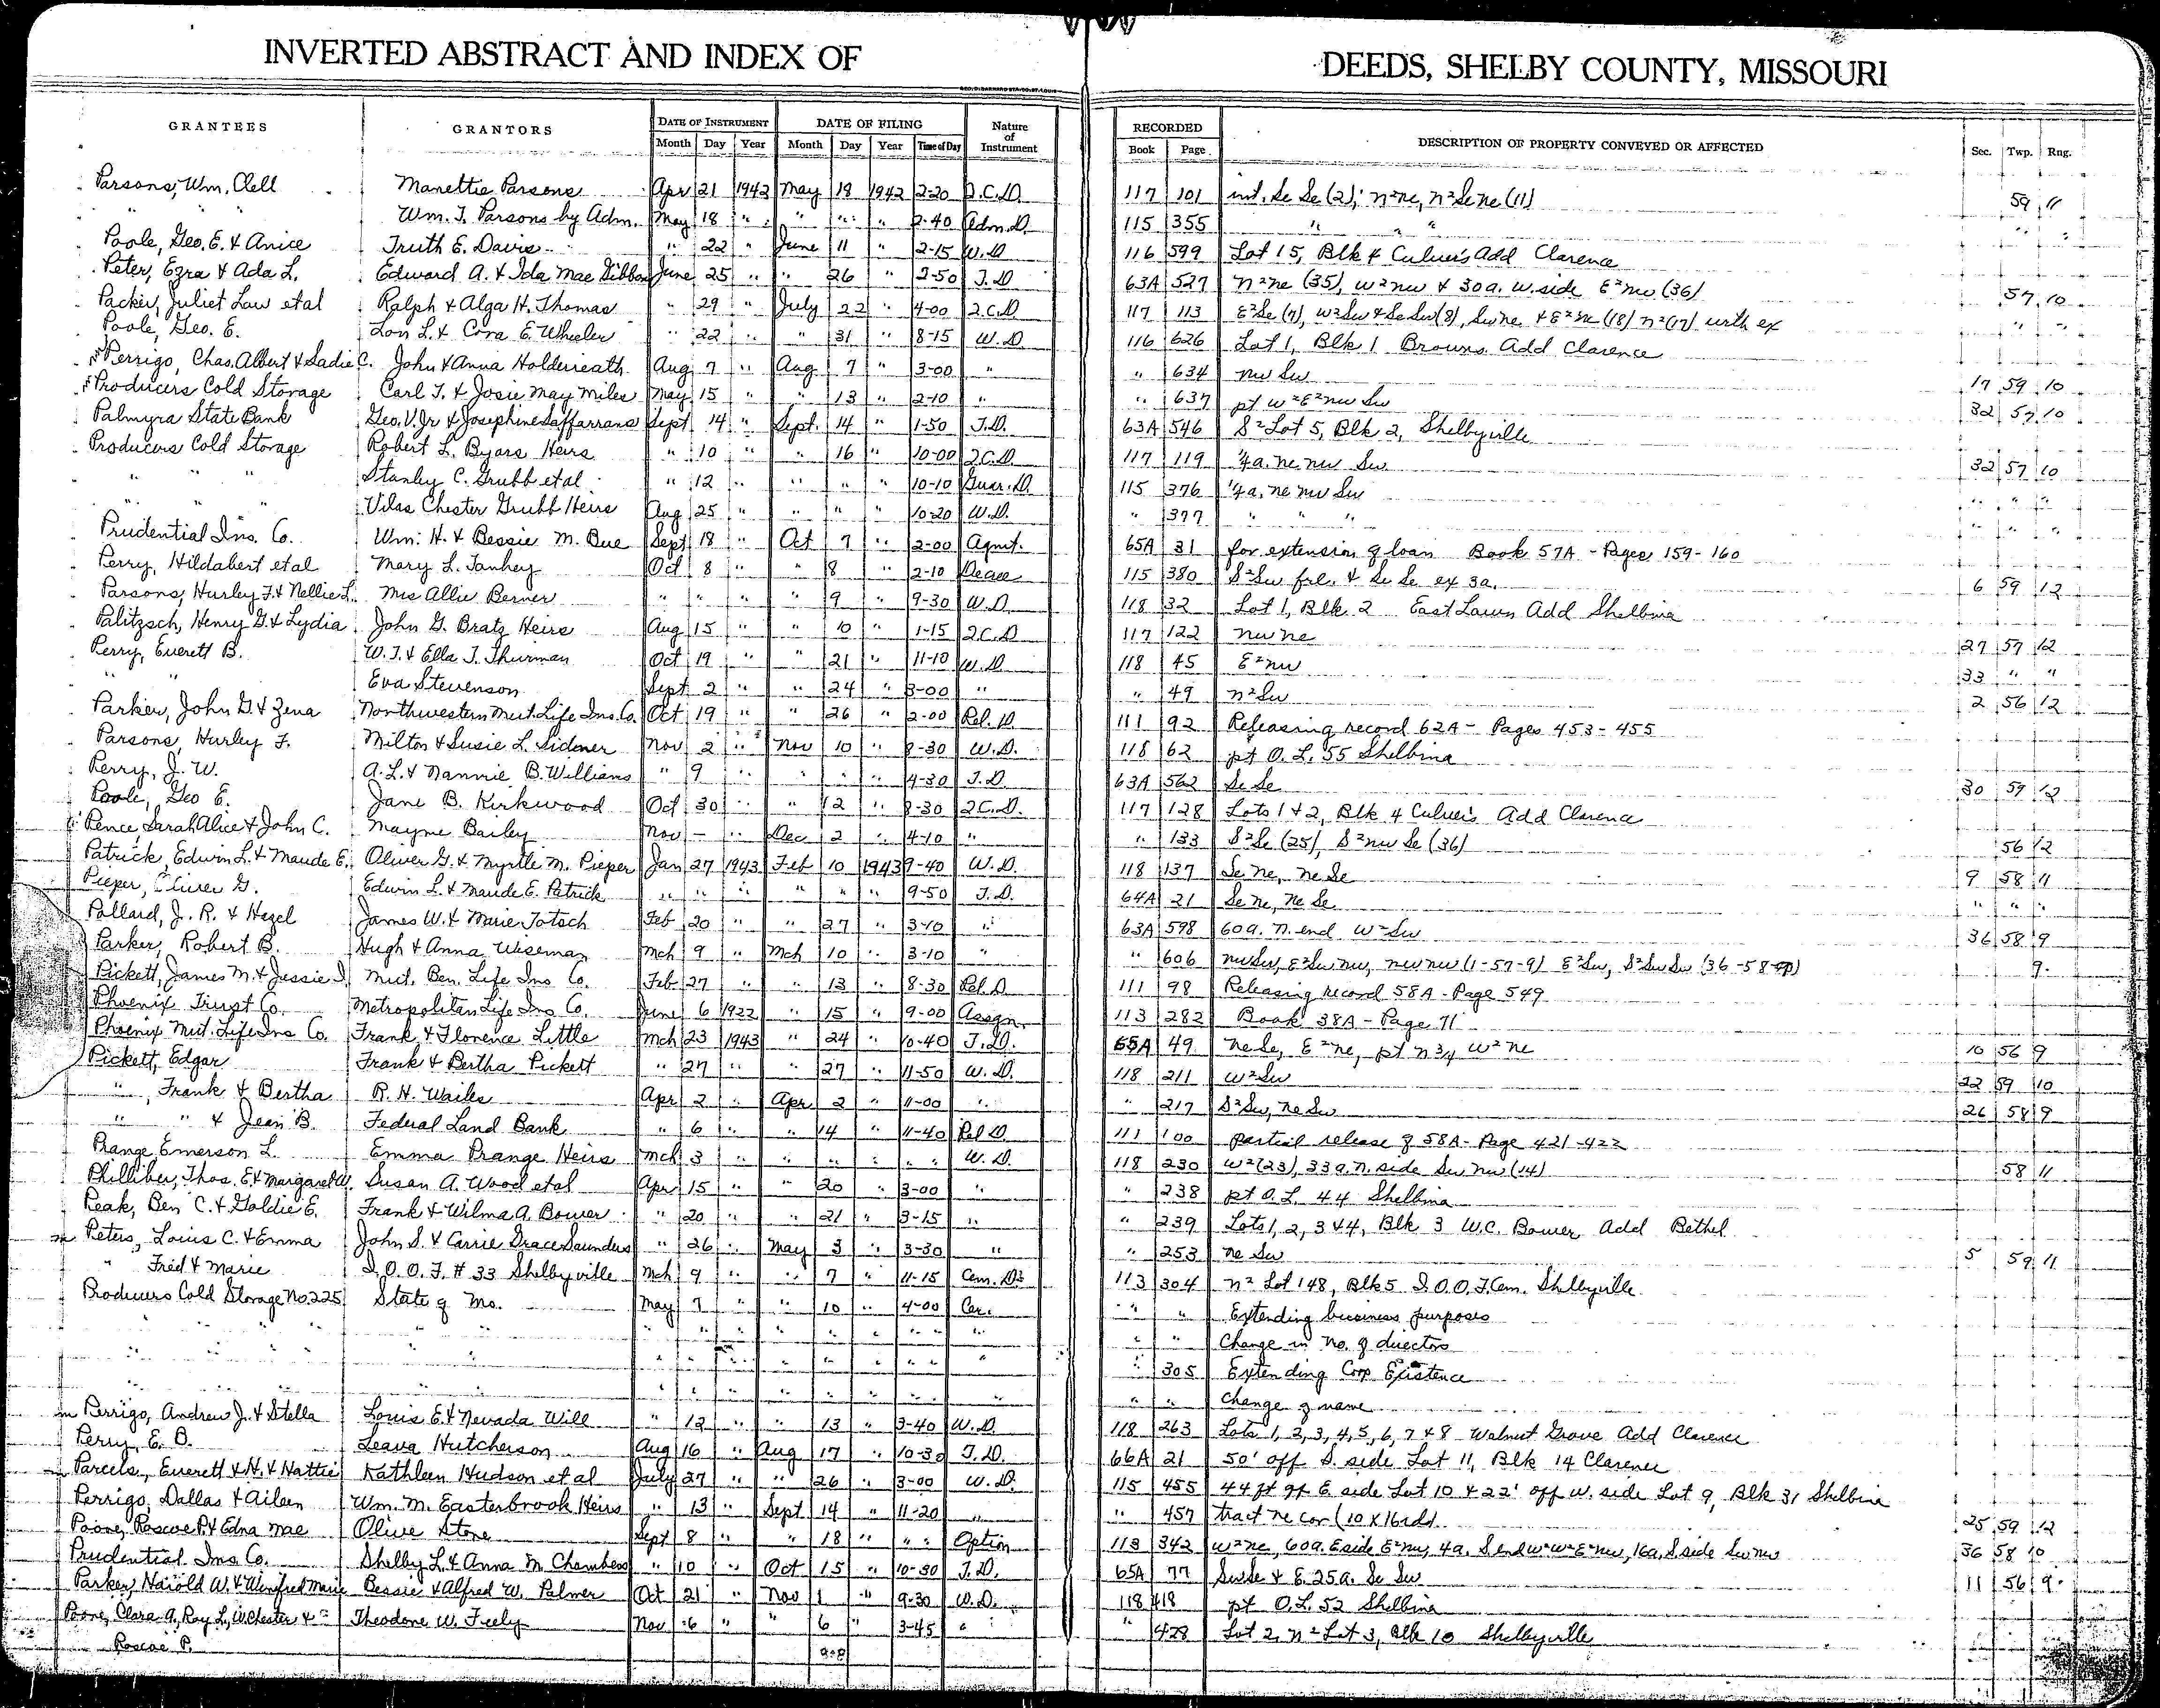 INVERTED ABSTRACT AND INDEX OF DEEDS, SHELBY COUNTY, MISSOURI
GRANTEES GRANTORS DATE OF INSTRUMENT DATE OF FILING Nature of Instrument RECORDED DESCRIPTION OF PROPERTY CONVEYED OR AFFECTED Sec. Twp. Rng.
Month Day Year Month Day Year Time of Day Book Page
Parsons, Wm. Clell Manettie Parsons Apr 21 1942 May 18 1942 2-20 Q.C.D. 117 101 int. Se Se (2), n²ne, n²Se ne (11) 59 11
" " Wm. T. Parsons by Adm. May 18 " " " " 2-40 Adm.D. 115 355 " " " "
Poole, Geo. E. & Anice Truth E. Davis " 22 " June 11 " 2-15 W.D. 116 599 Lot 15, Blk 4 Culver's Add Clarence
Peter, Ezra & Ada L. Edward A. & Ida Mae Gibbons June 25 " " 26 " 2-50 T.D. 63A 527 n²ne (35), w²nw & 30a. w. side E²nw (36) 57 10
Packer, Juliet Law etal Ralph & Alga H. Thomas " 29 " July 22 " 4-00 Q.C.D. 117 113 E²Se (7), W²Sw & Se Sw (8), Sw ne & E²ne (18) n²(17) with ex " "
Poole, Geo. E. Lon L. & Cora E. Wheeler " 22 " " 31 " 8-15 W.D. 116 626 Lot 1, Blk 1 Browns Add Clarence
Perrigo, Chas. Albert & Sadie C. John & Anna Holderieath Aug 7 " Aug 7 " 3-00 " " 634 nw Sw 17 59 10
Producers Cold Storage Carl T. & Josie May Miles May 15 " " 13 " 2-10 " " 637 pt w²E²nw Sw 32 57 10
Palmyra State Bank Geo. V. Jr & Josephine Saffarrans Sept 14 " Sept. 14 " 1-50 T.D. 63A 546 S²Lot 5, Blk 2, Shelbyville
Producers Cold Storage Robert L. Byars Heirs " 10 " " 16 " 10-00 Q.C.D. 117 119 ¼a. ne nw Sw 32 57 10
" " " Stanley C. Grubb etal " 12 " " " " 10-10 Guar. D. 115 376 ¼a. ne nw Sw " " "
" " " Vilas Chester Grubb Heirs Aug 25 " " " " 10-20 W.D. " 377 " " " " " "
Prudential Ins. Co. Wm. H. & Bessie M. Bue Sept 18 " Oct 7 " 2-00 Agmt. 65A 31 for extension of loan Book 57A - Pages 159-160
Perry, Hildabert etal Mary L. Tanhey Oct 8 " " 8 " 2-10 Decree 115 380 S²Sw frl. & Se Se ex 3a. 6 59 12
Parsons, Hurley F. & Nellie L. Mrs Allie Berver " " " " 9 " 9-30 W.D. 118 32 Lot 1, Blk 2 East Lawn Add Shelbina
Palitzsch, Henry G. & Lydia John G. Bratz Heirs Aug 15 " " 10 " 1-15 Q.C.D. 117 122 nw ne 27 57 12
Perry, Everett B. W. T. & Ella T. Thurman Oct 19 " " 21 " 11-10 W.D. 118 45 E²nw 33 " "
" " Eva Stevenson Sept 2 " " 24 " 3-00 " " 49 n²Sw 2 56 12
Parker, John G. & Zena Northwestern Mut. Life Ins. Co. Oct 19 " " 26 " 2-00 Rel. D. 111 92 Releasing record 62A - Pages 453-455
Parsons, Hurley F. Milton & Susie L. Sidener Nov 2 " Nov 10 " 8-30 W.D. 118 62 pt O.L. 55 Shelbina
Perry, J. W. A. L. & Nannie B. Williams " 9 " " " " 4-30 T.D. 63A 562 Se Se 30 59 12
Poole, Geo E. Jane B. Kirkwood Oct 30 " " 12 " 8-30 Q.C.D. 117 128 Lots 1 & 2, Blk 4 Culver's Add Clarence
Pence, Sarah Alice & John C. Mayme Bailey Nov — " Dec 2 " 4-10 " " 133 S²Se (25), S²nw Se (36) 56 12
Patrick, Edwin L. & Maude E. Oliver G. & Myrtle M. Pieper Jan 27 1943 Feb 10 1943 9-40 W.D. 118 137 Se ne, ne Se 9 58 11
Pieper, Oliver G. Edwin L. & Maude E. Patrick " " " " " " 9-50 T.D. 64A 21 Se ne, ne Se " " "
Pollard, J. R. & Hazel James W. & Marie Totsch Feb 20 " " 27 " 3-10 " 63A 598 60a. n. end W²Sw 36 58 9
Parker, Robert B. Hugh & Anna Wiseman Mch 9 " Mch 10 " 3-10 " " 606 nw Sw, E²Sw nw, nw nw (1-57-9) E²Sw, S²Sw Sw (36-58-9) 9
Pickett, James M. & Jessie D. Mut. Ben. Life Ins Co. Feb 27 " " 13 " 8-30 Rel. D. 111 98 Releasing record 58A - Page 549
Phoenix Trust Co. Metropolitan Life Ins Co. June 6 1922 " 15 " 9-00 Assgn. 113 282 Book 38A - Page 71
Phoenix Mut. Life Ins Co. Frank & Florence Little Mch 23 1943 " 24 " 10-40 T.D. 65A 49 ne Se, E²ne, pt n¾ W²ne 10 56 9
Pickett, Edgar Frank & Bertha Pickett " 27 " " 27 " 11-50 W.D. 118 211 W²Sw 22 59 10
" , Frank & Bertha R. H. Wailes Apr 2 " Apr 2 " 11-00 " " 217 S²Sw, ne Sw 26 58 9
" " & Jean B. Federal Land Bank " 6 " " 14 " 11-40 Rel D. 111 100 partial release of 58A - Page 421-422
Prange, Emerson L. Emma Prange Heirs Mch 3 " " " " " W.D. 118 230 W²(23), 33a. n. side Sw nw (14) 58 11
Philliber, Thos. E. & Margaret W. Susan A. Wood etal Apr 15 " " 20 " 3-00 " " 238 pt O.L. 44 Shelbina
Peak, Ben C. & Goldie E. Frank & Wilma A. Bower " 20 " " 21 " 3-15 " " 239 Lots 1, 2, 3 & 4, Blk 3 W.C. Bower Add Bethel
Peters, Louis C. & Emma John S. & Carrie Grace Saunders " 26 " May 3 " 3-30 " " 253 ne Sw 5 59 11
" Fred & Marie I.O.O.F. # 33 Shelbyville Mch 9 " " 7 " 11-15 Cem. D. 113 304 n² Lot 148, Blk 5 I.O.O.F. Cem. Shelbyville
Producers Cold Storage No. 225 State of Mo. May 7 " " 10 " 4-00 Cer. " " Extending business purposes
" " " " " " " " " " " " " " " Change in no. of directors
" " " " " " " " " " " " " " 305 Extending Corp Existence
" " " " " " " " " " " " " " " Change of name
Perrigo, Andrew J. & Stella Louis E. & Nevada Will " 12 " " 13 " 3-40 W.D. 118 263 Lots 1, 2, 3, 4, 5, 6, 7 & 8 Walnut Grove Add Clarence
Perry, E. B. Leava Hutcherson Aug 16 " Aug 17 " 10-30 T.D. 66A 21 50' off S. side Lot 11, Blk 14 Clarence
Parcels, Everett & H. & Hattie Kathleen Hudson et al July 27 " " 26 " 3-00 W.D. 115 455 44 ft off E side Lot 10 & 22' off W. side Lot 9, Blk 31 Shelbina
Perrigo, Dallas & Aileen Wm. M. Easterbrook Heirs " 13 " Sept 14 " 11-20 " " 457 tract ne cor (10 X 16 rds) 25 59 12
Poore, Roscoe P. & Edna Mae Olive Stone Sept 8 " " 18 " " Option 113 342 W²ne, 60a. E side E²nw, 4a. S end W²W²E²nw, 16a. S side Sw nw 36 58 10
Prudential Ins Co. Shelby L. & Anna M. Chambers " 10 " Oct 15 " 10-30 T.D. 65A 77 Sw Se & E. 25a. Se Sw 11 56 9
Parker, Harold W. & Winifred Marie Bessie & Alfred W. Palmer Oct 21 " Nov 1 " 9-30 W.D. 118 418 pt O.L. 52 Shelbina
Poore, Clara A, Roy L, W. Chester & Theodore W. Feely Nov 6 " " 6 " 3-45 " " 428 Lot 2, n² Lot 3, Blk 10 Shelbyville
Roscoe P.